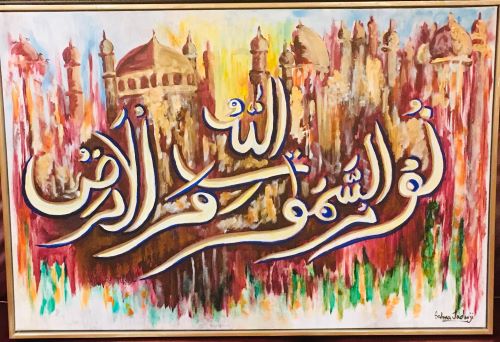 الله
نور السموت والارض
Salma Jadavji